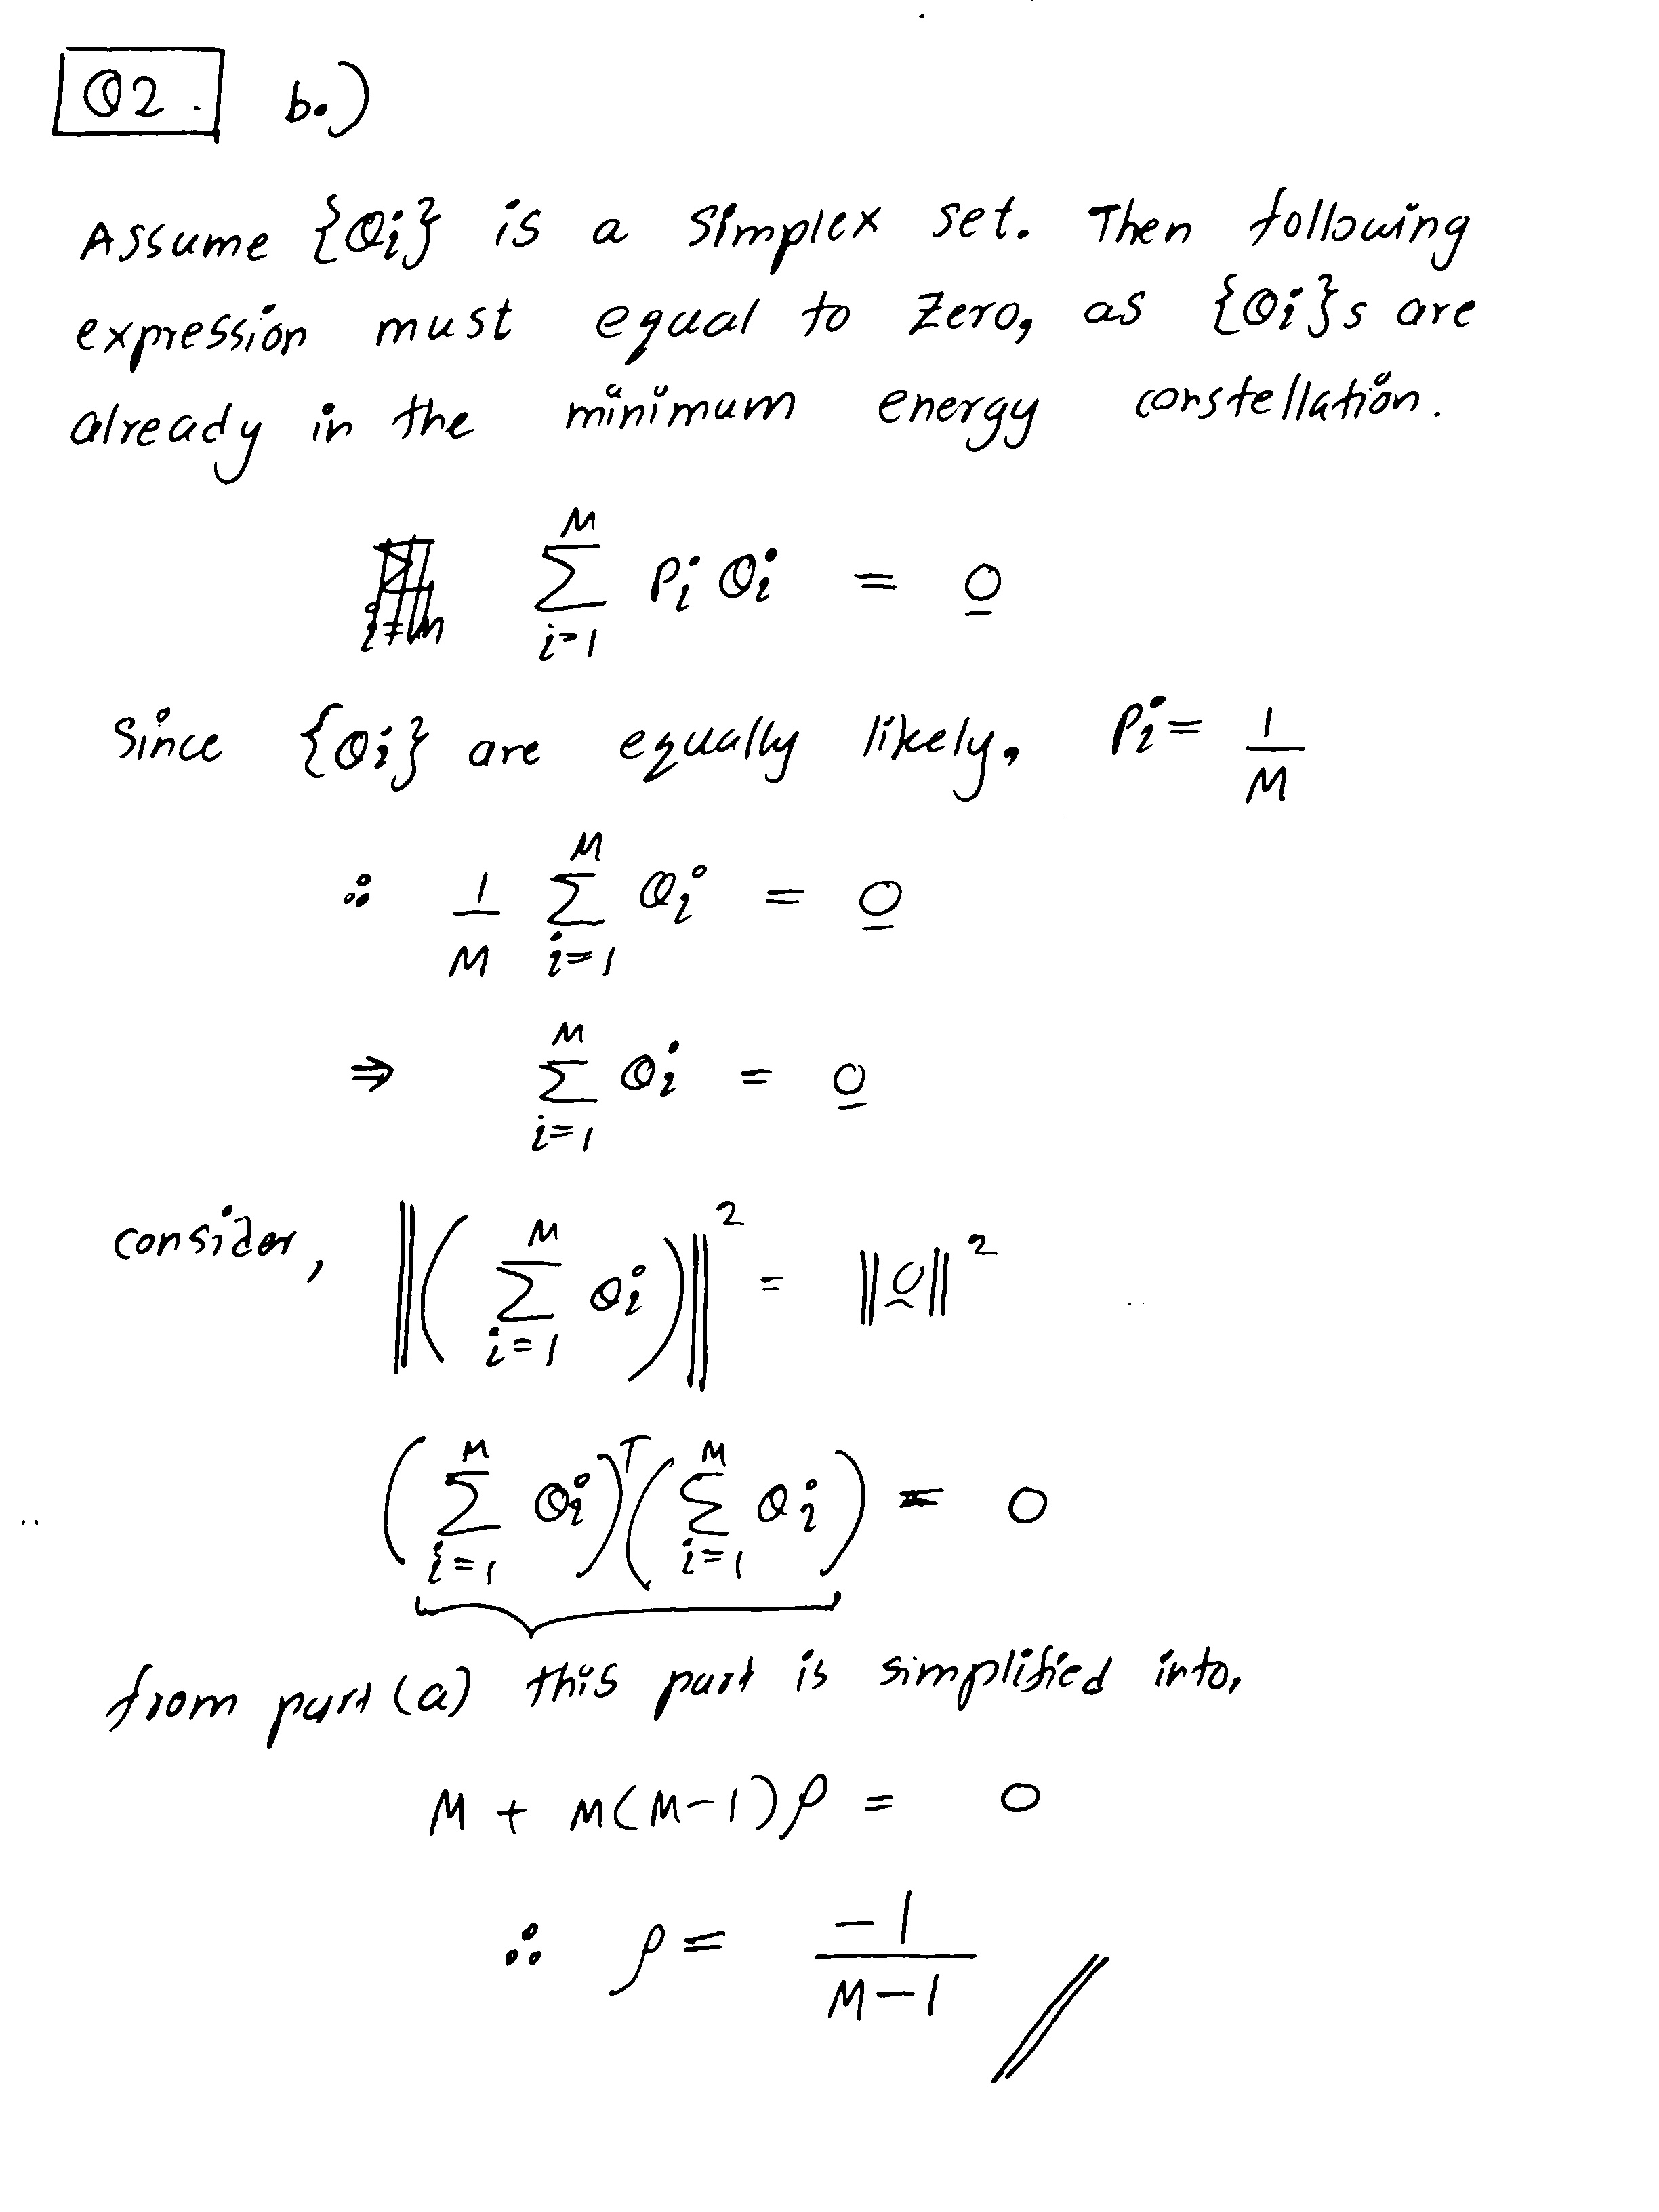 Q2. b.)
Assume {Qi} is a simplex set. Then following
expression must equal to zero, as {Qi}s are
already in the minimum energy constellation.
M
∑ Pi Qi = 0
i=1
Since {Qi} are equally likely, Pi = 1/M
∴ 1/M ∑_{i=1}^{M} Qi = 0
⇒ ∑_{i=1}^{M} Qi = 0
consider, ||(∑_{i=1}^{M} Qi)||² = ||0||²
(∑_{i=1}^{M} Qi)^T (∑_{i=1}^{M} Qi) = 0
from part (a) this part is simplified into,
M + M(M-1)ρ = 0
∴ ρ = -1/(M-1)